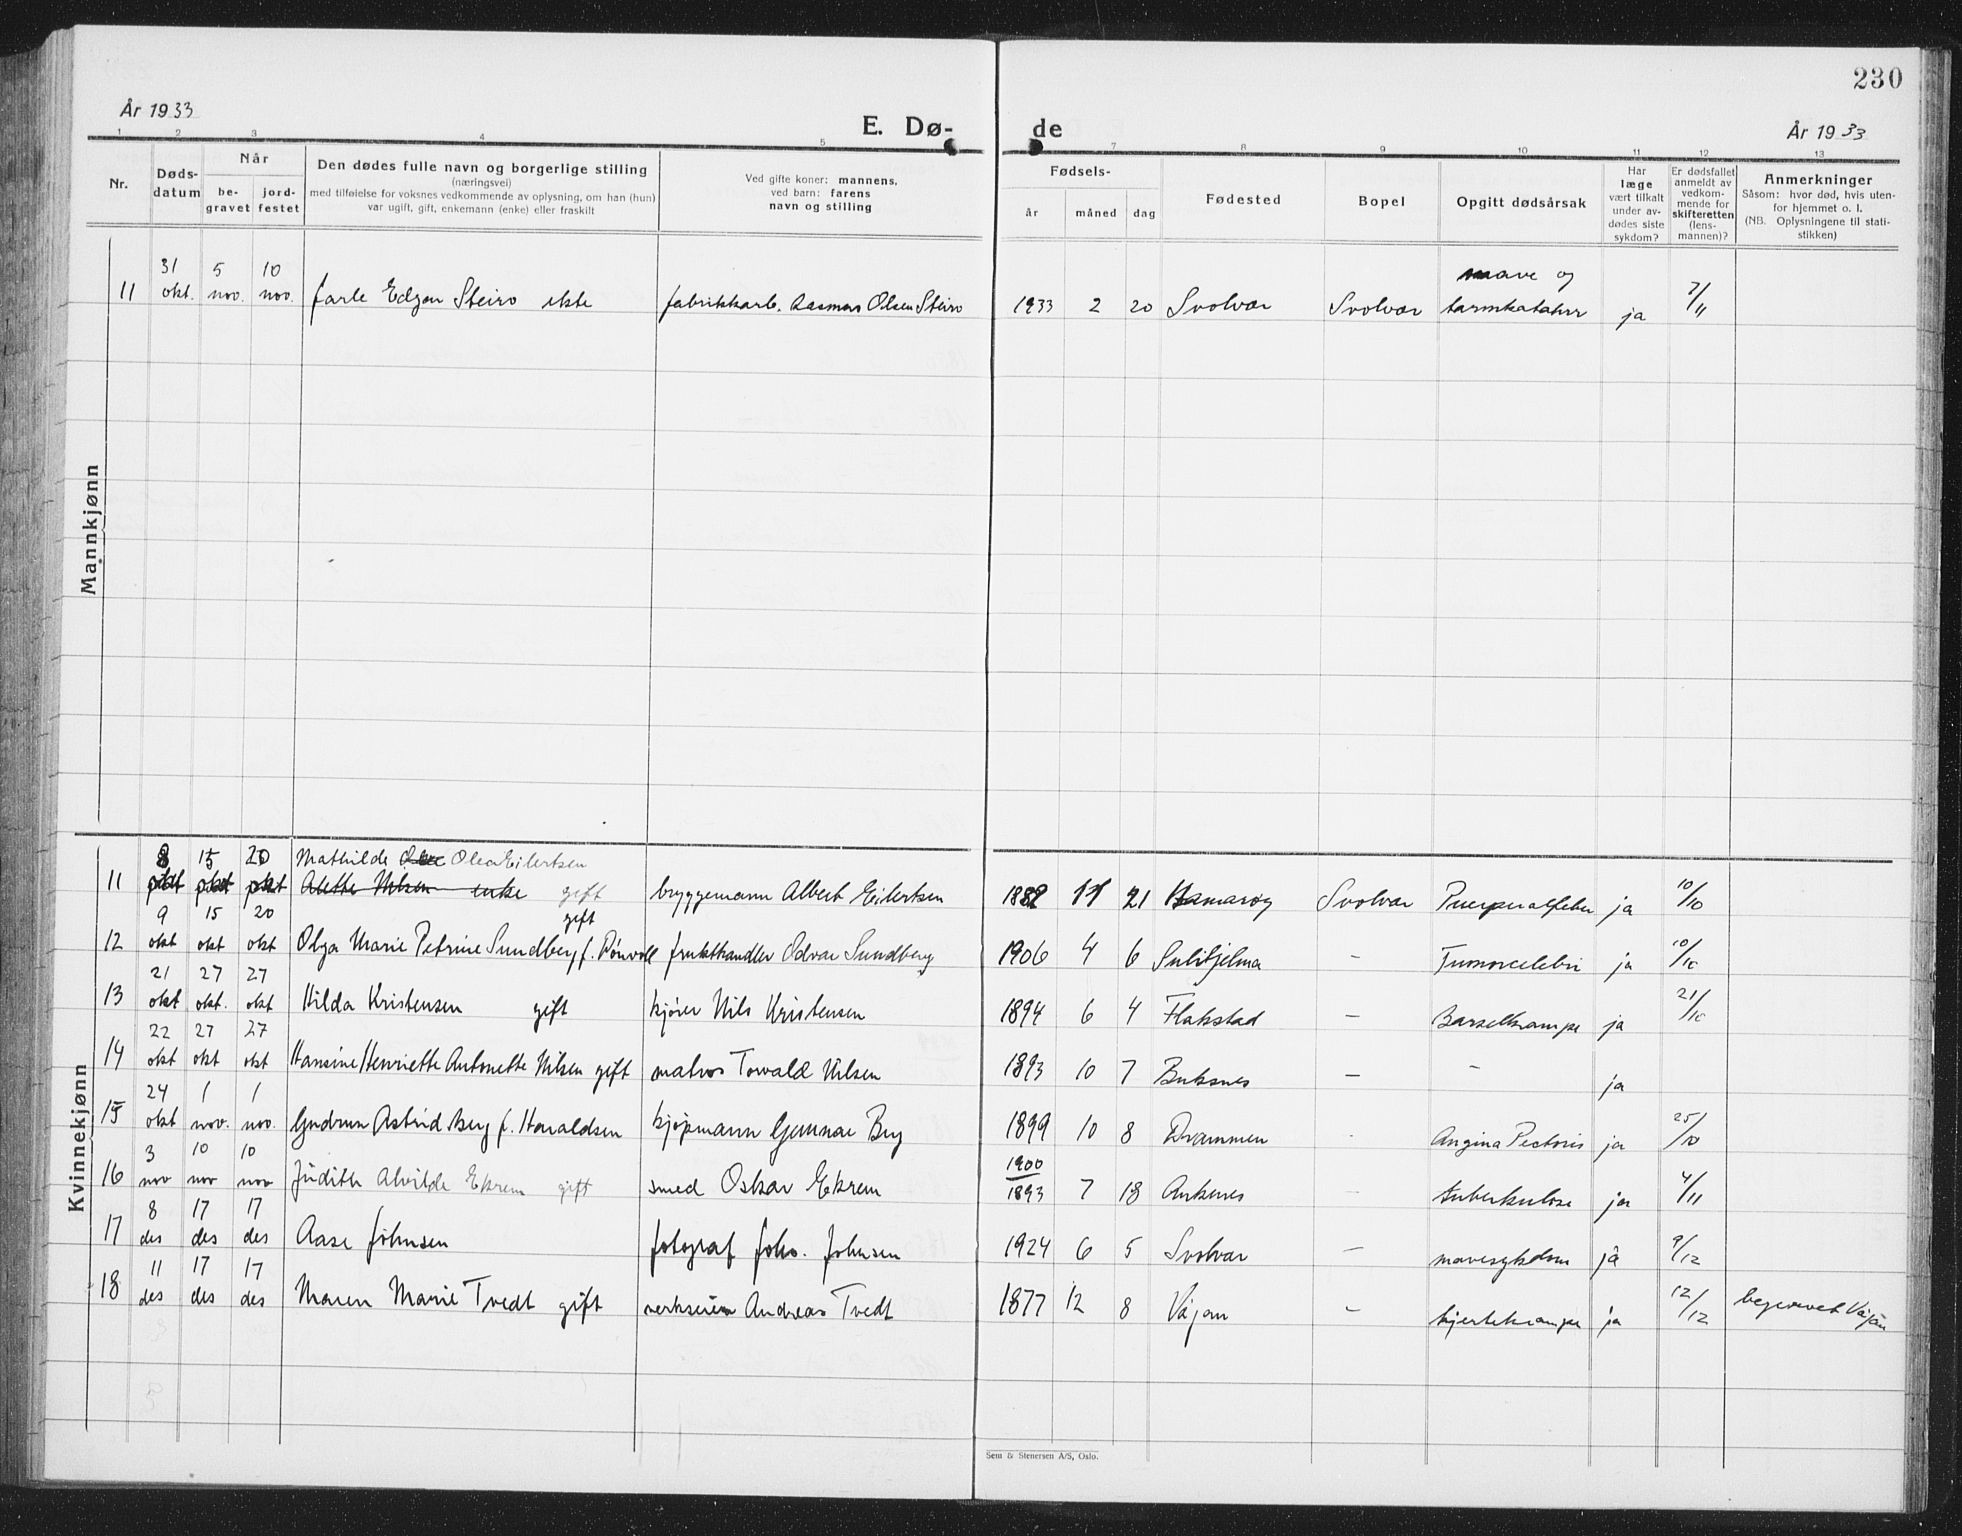 230
År 1933
E. Dø-
de
År 1933
1 2 3 4 5 7 8 9 10 11 12 13
Nr.
Døds-
datum
Når
be-
gravet
jord-
festet
Den dødes fulle navn og borgerlige stilling
(næringsvei)
med tilføielse for voksnes vedkommende av oplysning, om han (hun)
var ugift, gift, enkemann (enke) eller fraskilt
Ved gifte koner: mannens,
ved barn: farens
navn og stilling
Fødsels-
år måned dag
Fødested
Bopel
Opgitt dødsårsak
Har
læge
vært tilkalt
under av-
dødes siste
sykdom?
Er dødsfallet
anmeldt av
vedkom-
mende for
skifteretten
(lens-
mannen)?
Anmerkninger
Såsom: hvor død, hvis uten-
for hjemmet o. l.
(NB. Oplysningene til stati-
stikken)
Mannkjønn
31 5 10 mave og
11 okt. nov. nov. Jarle Edgar Steiro ekte fabrikkarb. Rasmus Olsen Steiro 1933 2 20 Svolvær Svolvær tarmkatahrr ja 7/11
Kvinnekjønn
8 15 20 Mathilde Olea Eilertsen
11 okt okt okt Alette Nilsen enke gift bryggemann Albert Eilertsen 1882 11 21 Hamarøy Svolvær Puerperalfeber ja 10/10
9 15 20 gift
12 okt okt okt Olga Marie Petrine Sundberg f. Rønvoll frukthandler Odvar Sundberg 1906 4 6 Sulitjelma - Tumorcelebri ja 10/10
21 27 27
13 okt okt. okt Hilda Kristensen gift kjører Nils Kristensen 1894 6 4 Flakstad - Barselkrampe ja 21/10
22 27 27
14 okt okt okt Hansine Henriette Antonette Nilsen gift matros Torvald Nilsen 1893 10 7 Buksnes - - ja
24 1 1
15 okt nov. nov. Gudrun Astrid Berg f. Haraldsen kjøpmann Gunnar Berg 1899 10 8 Drammen - Angina Pectoris ja 25/10
3 10 10 1900
16 nov nov nov Judith Alvilde Ekrem gift smed Oskar Ekrem 1893 7 18 Ankenes - tuberkulose ja 4/11
8 17 17
17 des des des Aase Johnsen fotograf Johs. Johnsen 1924 6 5 Svolvær - mavesykdom ja 9/12
11 17 17
18 des des des Maren Marie Tvedt gift Andreas Tvedt 1877 12 8 Vågan - hjertekrampe ja 12/12 begravet Vågan
Sem & Stenersen A/S, Oslo.